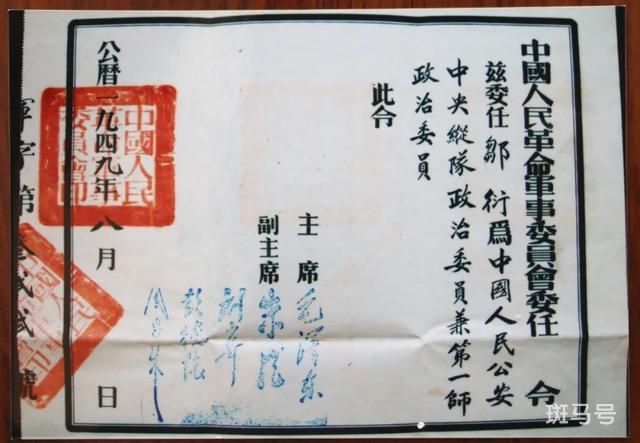 中國人民革命軍事委員會委任令
茲委任鄒 衍爲中國人民公安
中央縱隊政治委員兼第一師
政治委員
此令
主席 毛澤東
副主席 朱德
劉少奇
彭德懷
周恩來
公曆一九四九年八月 日
中國人民革命軍事委員會印
軍字第叁貳貳號
斑马号